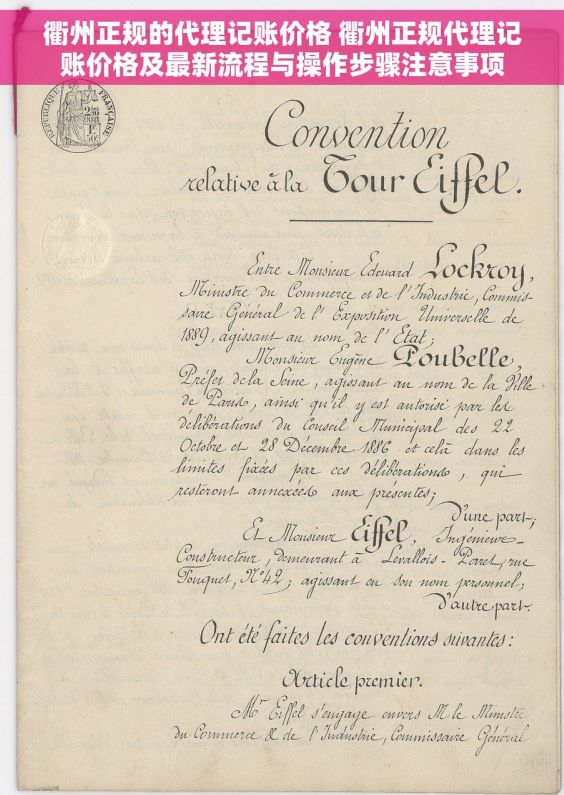 衢州正规的代理记账价格 衢州正规代理记
账价格及最新流程与操作步骤注意事项
RÉPUBLIQUE FRANÇAISE
Convention
relative à la Tour Eiffel.
Entre Monsieur Edouard Lockroy,
Ministre du Commerce et de l'Industrie, Commis-
saire Général de l'Exposition Universelle de
1889, agissant au nom de l'Etat;
Monsieur Eugène Poubelle,
Préfet de la Seine, agissant au nom de la Ville
de Paris, ainsi qu'il y est autorisé par les
délibérations du Conseil Municipal des 22
Octobre et 28 Décembre 1886 et celà dans les
limites fixées par ces délibérations, qui
resteront annexées aux présentes;
d'une part;
Et Monsieur Eiffel, Ingénieur-
Constructeur, demeurant à Levallois-Perret, rue
Fouquet, N°42; agissant en son nom personnel,
d'autre part.
Ont été faites les conventions suivantes:
Article premier.
Mr Eiffel s'engage envers M le Ministre
du Commerce & de l'Industrie, Commissaire Général